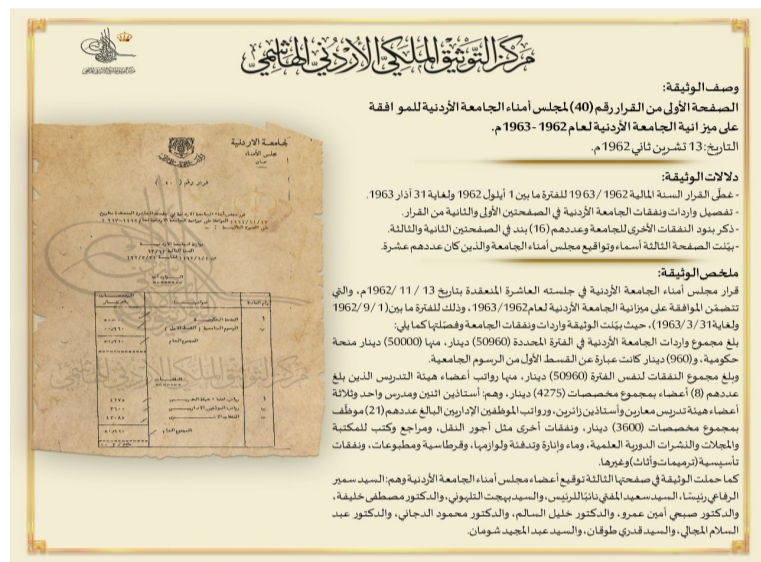 مركز التوثيق الملكي الأردني الهاشمي
وصف الوثيقة:
الصفحة الأولى من القرار رقم (40) لمجلس أمناء الجامعة الأردنية للموافقة
على ميزانية الجامعة الأردنية لعام 1962 - 1963م.
التاريخ: 13 تشرين ثاني 1962م.
دلالات الوثيقة:
- غطّى القرار السنة المالية 1962/ 1963 للفترة ما بين 1 أيلول 1962 ولغاية 31 آذار 1963.
- تفصيل واردات ونفقات الجامعة الأردنية في الصفحتين الأولى والثانية من القرار.
- ذكر بنود النفقات الأخرى للجامعة وعددهم (16) بند في الصفحتين الثانية والثالثة.
- بيّنت الصفحة الثالثة أسماء وتواقيع مجلس أمناء الجامعة والذين كان عددهم عشرة.
ملخص الوثيقة:
قرار مجلس أمناء الجامعة الأردنية في جلسته العاشرة المنعقدة بتاريخ 13 / 11 /1962م، والتي
تتضمّن الموافقة على ميزانية الجامعة الأردنية لعام 1962/ 1963م، وذلك للفترة ما بين (1 /9 /1962
ولغاية 31/ 3/ 1963)، حيث بيّنت الوثيقة واردات ونفقات الجامعة وفصّلتها كما يلي:
بلغ مجموع واردات الجامعة الأردنية في الفترة المحددة (50960) دينار، منها (50000) دينار منحة
حكومية، و(960) دينار كانت عبارة عن القسط الأول من الرسوم الجامعية.
وبلغ مجموع النفقات لنفس الفترة (50960) دينار، منها رواتب أعضاء هيئة التدريس الذين بلغ
عددهم (8) أعضاء بمجموع مخصصات (4275) دينار، وهم: أستاذين اثنين ومدرس واحد وثلاثة
أعضاء هيئة تدريس معارين وأستاذين زائرين. ورواتب الموظفين الإداريين البالغ عددهم (21) موظّف
بمجموع مخصصات (3600) دينار، ونفقات أخرى مثل أجور النقل، ومراجع وكتب للمكتبة
والمجلات والنشرات الدورية العلمية، وماء وإنارة وتدفئة ولوازمها، وقرطاسية ومطبوعات، ونفقات
تأسيسية (ترميمات وأثاث) وغيرها.
كما حملت الوثيقة في صفحتها الثالثة توقيع أعضاء مجلس أمناء الجامعة الأردنية وهم: السيد سمير
الرفاعي رئيسًا، السيد سعيد المفتي نائبًا للرئيس، والسيد بهجت التلهوني، والدكتور مصطفى خليفة،
والدكتور صبحي أمين عمرو، والدكتور خليل السالم، والدكتور محمود الدجاني، والدكتور عبد
السلام المجالي، والسيد قدري طوقان، والسيد عبد المجيد شومان.
الجامعة الاردنية
مجلس الأمناء
عمان
قرار رقم ( ٤٠ )